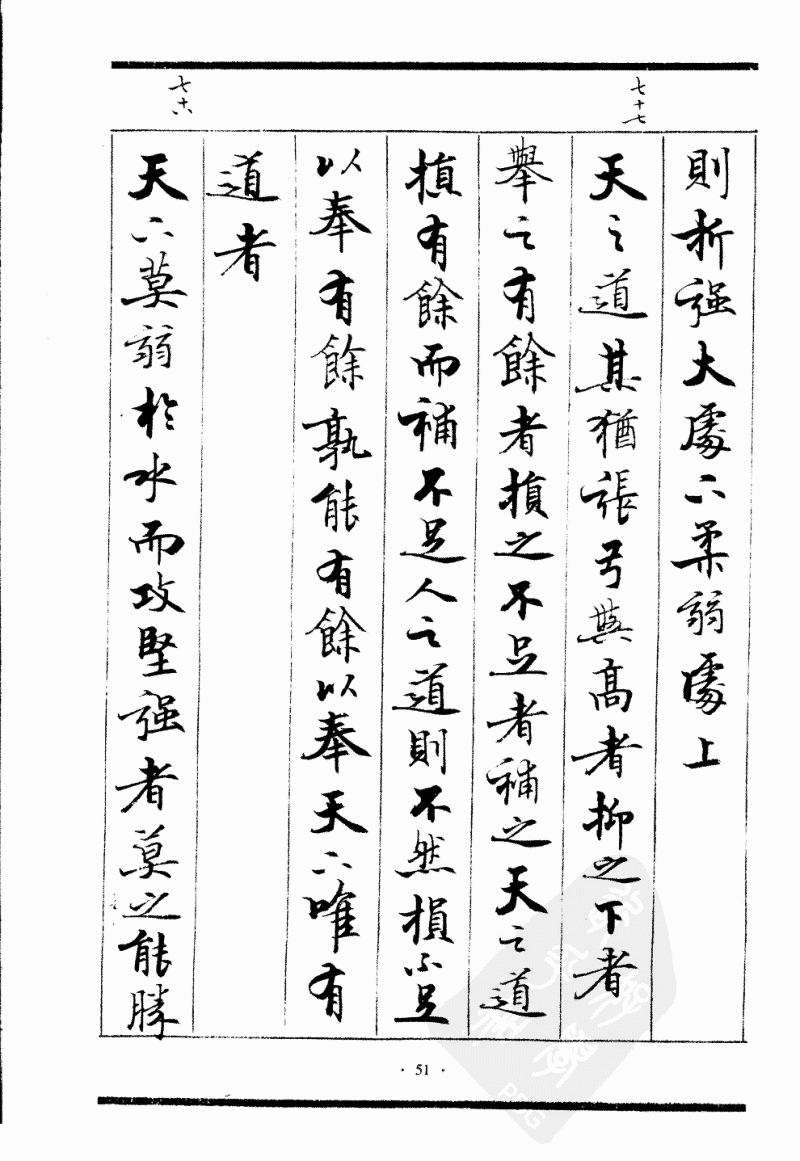 七十七
則折强大處下柔弱處上
天之道其猶張弓與高者抑之下者
舉之有餘者損之不足者補之天之道
損有餘而補不足人之道則不然損不足
以奉有餘孰能有餘以奉天下唯有
道者
七十八
天下莫弱於水而攻堅强者莫之能勝
· 51 ·
PDG